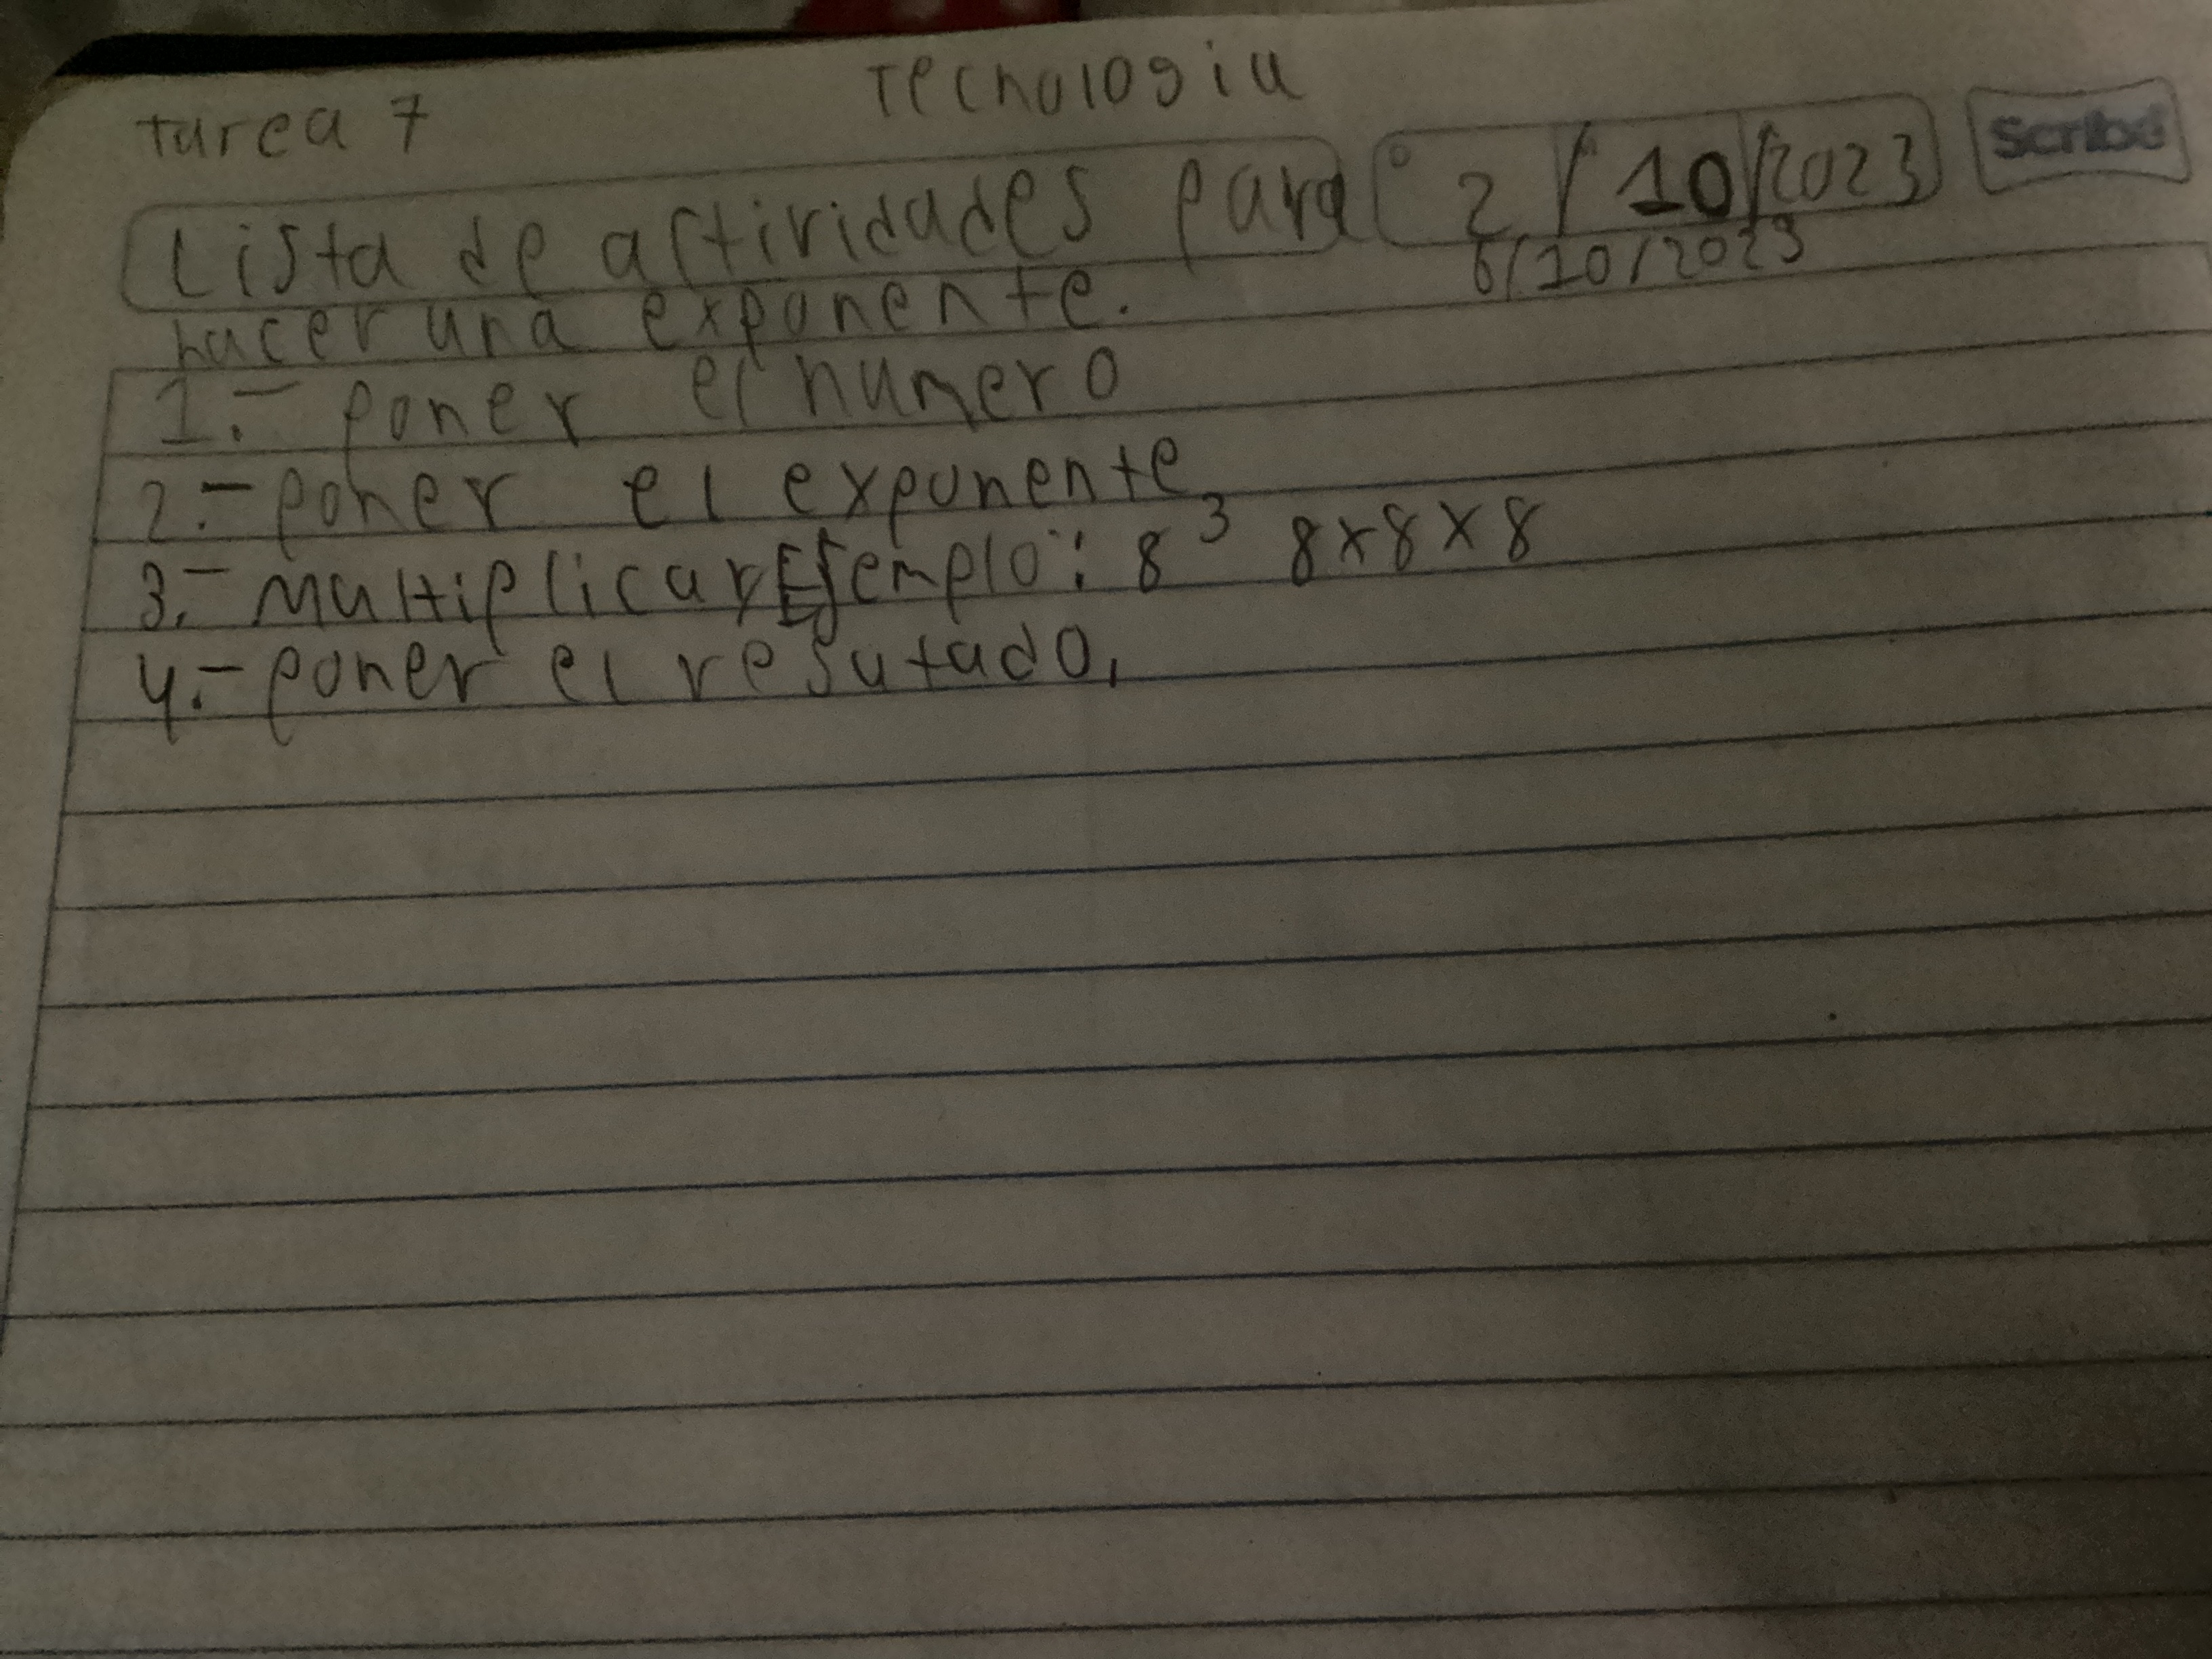 Tecnologia
tarea 7
Scribe
Lista de actividades para 2/10/2023
hacer una exponente. 6/10/2023
1.- poner el numero
2.- poner el exponente
3.- Multiplicar Ejemplo: 8³ 8x8x8
4.- poner el resutado,